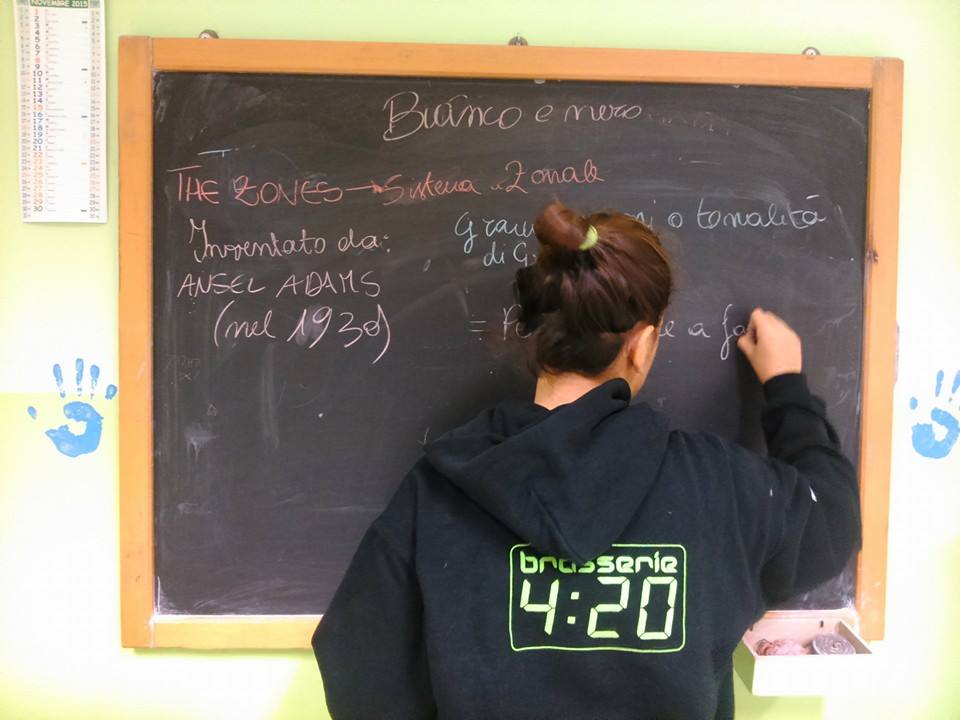 NOVEMBRE 2015
Bianco e nero
THE ZONES → Sistema Zonale
Inventato da:
ANSEL ADAMS
(nel 1930)
o tonalità
di
=
e a
brasserie
4:20